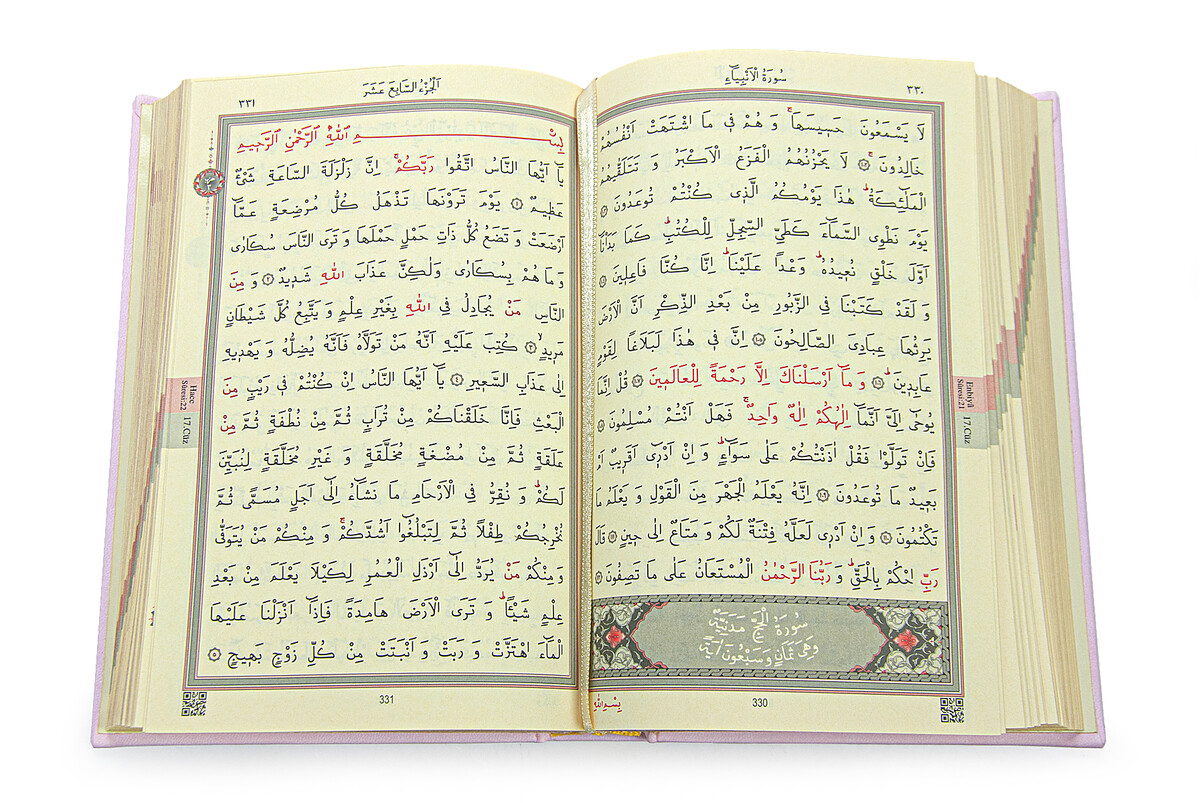 سُورَةُ الْاَنْبِيَٓاءِ
٣٣٠
لَا يَسْمَعُونَ حَسٖيسَهَاۚ وَ هُمْ فٖي مَا اشْتَهَتْ اَنْفُسُهُمْ
خَالِدُونَۚ ﴿١٠٢﴾ لَا يَحْزُنُهُمُ الْفَزَعُ الْاَكْبَرُ وَ تَتَلَقّٰيهُمُ
الْمَلٰٓئِكَةُؕ هٰذَا يَوْمُكُمُ الَّذٖي كُنْتُمْ تُوعَدُونَ ﴿١٠٣﴾
يَوْمَ نَطْوِي السَّمَٓاءَ كَطَيِّ السِّجِلِّ لِلْكُتُبِؕ كَمَا بَدَاْنَٓا
اَوَّلَ خَلْقٍ نُعٖيدُهُؕ وَعْدًا عَلَيْنَاؕ اِنَّا كُنَّا فَاعِلٖينَ ﴿١٠٤﴾
وَ لَقَدْ كَتَبْنَا فِي الزَّبُورِ مِنْ بَعْدِ الذِّكْرِ اَنَّ الْاَرْضَ
يَرِثُهَا عِبَادِيَ الصَّالِحُونَ ﴿١٠٥﴾ اِنَّ فٖي هٰذَا لَبَلَاغًا لِقَوْمٍ
عَابِدٖينَؕ ﴿١٠٦﴾ وَ مَٓا اَرْسَلْنَاكَ اِلَّا رَحْمَةً لِلْعَالَمٖينَ ﴿١٠٧﴾ قُلْ اِنَّمَا
يُوحٰٓى اِلَيَّ اَنَّمَٓا اِلٰهُكُمْ اِلٰهٌ وَاحِدٌۚ فَهَلْ اَنْتُمْ مُسْلِمُونَ ﴿١٠٨﴾
فَاِنْ تَوَلَّوْا فَقُلْ اٰذَنْتُكُمْ عَلٰى سَوَٓاءٍؕ وَ اِنْ اَدْرٖٓي اَقَرٖيبٌ اَمْ
بَعٖيدٌ مَا تُوعَدُونَ ﴿١٠٩﴾ اِنَّهُ يَعْلَمُ الْجَهْرَ مِنَ الْقَوْلِ وَ يَعْلَمُ مَا
تَكْتُمُونَ ﴿١١٠﴾ وَ اِنْ اَدْرٖي لَعَلَّهُ فِتْنَةٌ لَكُمْ وَ مَتَاعٌ اِلٰى حٖينٍ ﴿١١١﴾ قَالَ
رَبِّ احْكُمْ بِالْحَقِّؕ وَ رَبُّنَا الرَّحْمٰنُ الْمُسْتَعَانُ عَلٰى مَا تَصِفُونَ ﴿١١٢﴾
سُورَةُ الْحَجِّ مَدَنِيَّةٌ
وَهِيَ ثَمَانٍ وَسَبْعُونَ اٰيَةً
Enbiyâ
Sûresi:21
17.Cüz
330
بِسْمِ اللّٰهِ
اَلْجُزْءُ السَّابِعَ عَشَرَ
٣٣١
بِسْمِ اللّٰهِ الرَّحْمٰنِ الرَّحٖيمِ
يَٓا اَيُّهَا النَّاسُ اتَّقُوا رَبَّكُمْۚ اِنَّ زَلْزَلَةَ السَّاعَةِ شَيْءٌ
عَظٖيمٌ ﴿١﴾ يَوْمَ تَرَوْنَهَا تَذْهَلُ كُلُّ مُرْضِعَةٍ عَمَّٓا
اَرْضَعَتْ وَ تَضَعُ كُلُّ ذَاتِ حَمْلٍ حَمْلَهَا وَ تَرَى النَّاسَ سُكَارٰى
وَ مَا هُمْ بِسُكَارٰى وَلٰكِنَّ عَذَابَ اللّٰهِ شَدٖيدٌ ﴿٢﴾ وَ مِنَ
النَّاسِ مَنْ يُجَادِلُ فِي اللّٰهِ بِغَيْرِ عِلْمٍ وَ يَتَّبِعُ كُلَّ شَيْطَانٍ
مَرٖيدٍۙ ﴿٣﴾ كُتِبَ عَلَيْهِ اَنَّهُ مَنْ تَوَلَّاهُ فَاَنَّهُ يُضِلُّهُ وَ يَهْدٖيهِ
اِلٰى عَذَابِ السَّعٖيرِ ﴿٤﴾ يَٓا اَيُّهَا النَّاسُ اِنْ كُنْتُمْ فٖي رَيْبٍ مِنَ
الْبَعْثِ فَاِنَّا خَلَقْنَاكُمْ مِنْ تُرَابٍ ثُمَّ مِنْ نُطْفَةٍ ثُمَّ مِنْ
عَلَقَةٍ ثُمَّ مِنْ مُضْغَةٍ مُخَلَّقَةٍ وَ غَيْرِ مُخَلَّقَةٍ لِنُبَيِّنَ
لَكُمْؕ وَ نُقِرُّ فِي الْاَرْحَامِ مَا نَشَٓاءُ اِلٰٓى اَجَلٍ مُسَمًّى ثُمَّ
نُخْرِجُكُمْ طِفْلًا ثُمَّ لِتَبْلُغُٓوا اَشُدَّكُمْۚ وَ مِنْكُمْ مَنْ يُتَوَفّٰى
وَمِنْكُمْ مَنْ يُرَدُّ اِلٰٓى اَرْذَلِ الْعُمُرِ لِكَيْلَا يَعْلَمَ مِنْ بَعْدِ
عِلْمٍ شَيْـًٔاؕ وَ تَرَى الْاَرْضَ هَامِدَةً فَاِذَٓا اَنْزَلْنَا عَلَيْهَا
الْمَٓاءَ اهْتَزَّتْ وَ رَبَتْ وَ اَنْبَتَتْ مِنْ كُلِّ زَوْجٍ بَهٖيجٍ ﴿٥﴾
Hacc
Sûresi:22
17.Cüz
331